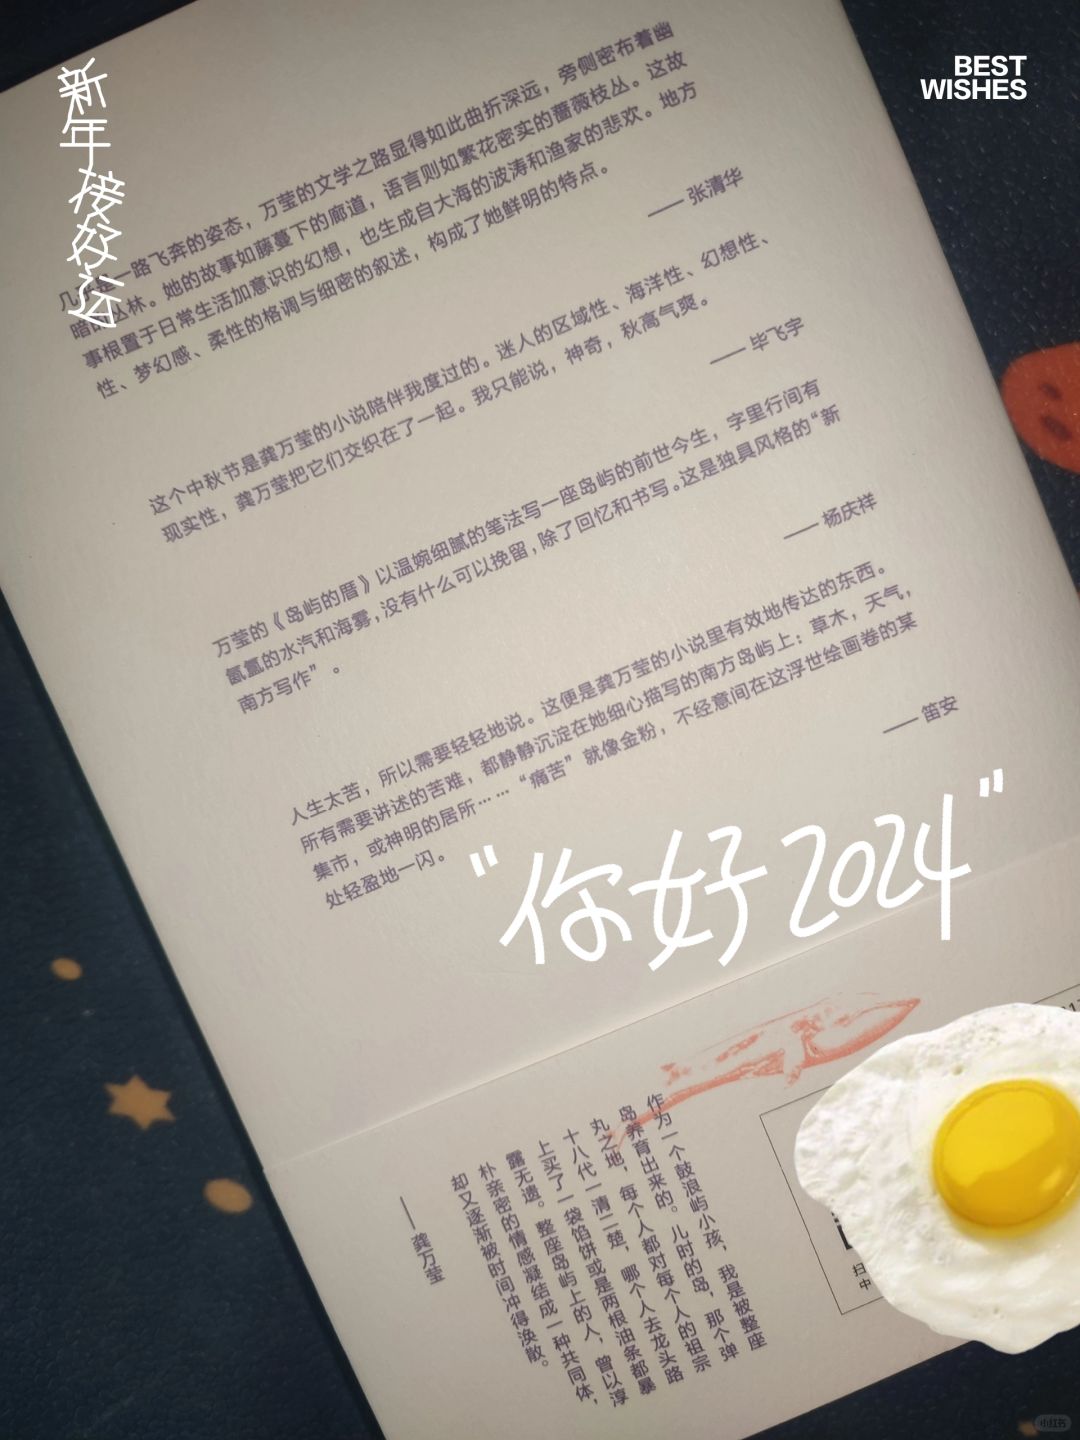 新年接好运
BEST
WISHES
几乎是一路飞奔的姿态，万莹的文学之路显得如此曲折深远，旁侧密布着幽
暗的丛林。她的故事如藤蔓下的廊道，语言则如繁花密实的蔷薇枝丛。这故
事根置于日常生活加意识的幻想，也生成自大海的波涛和渔家的悲欢。地方
性、梦幻感、柔性的格调与细密的叙述，构成了她鲜明的特点。
—— 张清华
这个中秋节是龚万莹的小说陪伴我度过的。迷人的区域性、海洋性、幻想性、
现实性，龚万莹把它们交织在了一起。我只能说，神奇，秋高气爽。
—— 毕飞宇
万莹的《岛屿的厝》以温婉细腻的笔法写一座岛屿的前世今生，字里行间有
氤氲的水汽和海雾，没有什么可以挽留，除了回忆和书写。这是独具风格的“新
南方写作”。
—— 杨庆祥
人生太苦，所以需要轻轻地说。这便是龚万莹的小说里有效地传达的东西。
所有需要讲述的苦难，都静静沉淀在她细心描写的南方岛屿上：草木，天气，
集市，或神明的居所……“痛苦”就像金粉，不经意间在这浮世绘画卷的某
处轻盈地一闪。
—— 笛安
“你好2024”
作为一个鼓浪屿小孩，我是被整座
岛养育出来的。儿时的岛，那个弹
丸之地，每个人都对每个人的祖宗
十八代一清二楚，哪个人去龙头路
上买了一袋馅饼或是两根油条都暴
露无遗。整座岛屿上的人，曾以淳
朴亲密的情感凝结成一种共同体，
却又逐渐被时间冲得涣散。
—— 龚万莹
扫
中
小红书